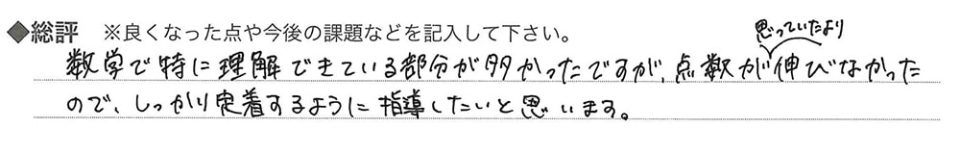 ◆総評 ※良くなった点や今後の課題などを記入して下さい。
思っていたより
数学で特に理解できている部分が多かったですが、点数が伸びなかった
ので、しっかり定着するように指導したいと思います。